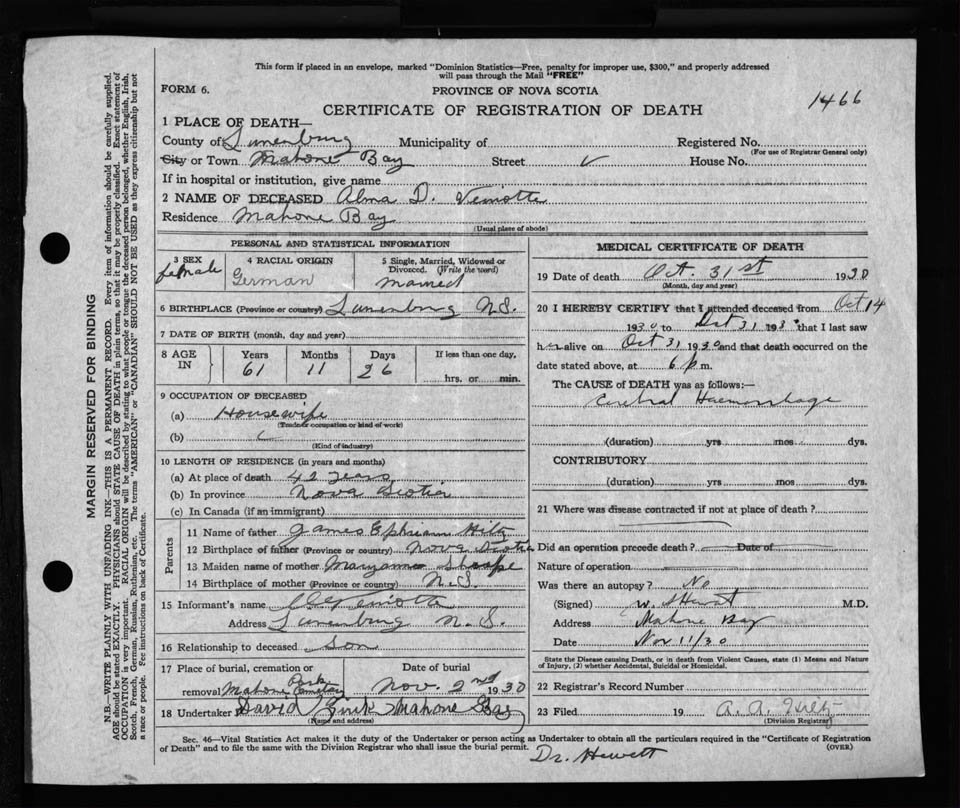 This form if placed in an envelope, marked "Dominion Statistics—Free, penalty for improper use, $300," and properly addressed
will pass through the Mail "FREE"
FORM 6.
PROVINCE OF NOVA SCOTIA
1466
CERTIFICATE OF REGISTRATION OF DEATH
1 PLACE OF DEATH—
County of Lunenburg Municipality of Registered No.
(For use of Registrar General only)
City or Town Mahone Bay Street House No.
If in hospital or institution, give name
2 NAME OF DECEASED Alma D. Veinotte
Residence Mahone Bay
(Usual place of abode)
PERSONAL AND STATISTICAL INFORMATION
3 SEX female
4 RACIAL ORIGIN German
5 Single, Married, Widowed or Divorced. (Write the word) Married
6 BIRTHPLACE (Province or country) Lunenburg N.S.
7 DATE OF BIRTH (month, day and year)
8 AGE IN Years 61 Months 11 Days 26 If less than one day, hrs. or min.
9 OCCUPATION OF DECEASED
(a) Housewife
(Trade or occupation or kind of work)
(b)
(Kind of industry)
10 LENGTH OF RESIDENCE (in years and months)
(a) At place of death 42 years
(b) In province Nova Scotia
(c) In Canada (if an immigrant)
Parents
11 Name of father James Ephriam Hitz
12 Birthplace of father (Province or country) Nova Scotia
13 Maiden name of mother Maryanna
14 Birthplace of mother (Province or country) N.S.
15 Informant's name Veinotte
Address Lunenburg N.S.
16 Relationship to deceased Son
17 Place of burial, cremation or removal Mahone Park Cemetery
Date of burial Nov. 2nd 1930
18 Undertaker David Zink Mahone Bay
(Name and address)
MEDICAL CERTIFICATE OF DEATH
19 Date of death Oct. 31st 1930
(Month, day and year)
20 I HEREBY CERTIFY that I attended deceased from Oct 14
1930 to Oct 31 1930 that I last saw
her alive on Oct 31 1930 and that death occurred on the
date stated above, at 6 p m.
The CAUSE of DEATH was as follows:
Cerebral Haemorrhage
(duration) yrs. mos. dys.
CONTRIBUTORY
(duration) yrs. mos. dys.
21 Where was disease contracted if not at place of death?
Did an operation precede death? Date of
Nature of operation
Was there an autopsy? No
(Signed) M.D.
Address Mahone Bay
Date Nov 11/30
State the Disease causing Death, or in death from Violent Causes, state (1) Means and Nature
of Injury, (2) whether Accidental, Suicidal or Homicidal.
22 Registrar's Record Number
23 Filed 19 A. A.
(Division Registrar)
Sec. 46—Vital Statistics Act makes it the duty of the Undertaker or person acting as Undertaker to obtain all the particulars required in the "Certificate of Registration
of Death" and to file the same with the Division Registrar who shall issue the burial permit.
(OVER)
Dr. Hewett
MARGIN RESERVED FOR BINDING
N.B.—WRITE PLAINLY WITH UNFADING INK—THIS IS A PERMANENT RECORD. Every item of information should be carefully supplied.
AGE should be stated EXACTLY. PHYSICIANS should STATE CAUSE OF DEATH in plain terms, so that it may be properly classified. Exact statement of
OCCUPATION is very important. RACIAL ORIGIN will be described by stating to what people or tongue the deceased person belonged, whether English, Irish,
Scotch, French, German, Russian, Ruthenian, etc. The terms "AMERICAN" or "CANADIAN" SHOULD NOT BE USED as they express citizenship but not
a race or people. See instructions on back of Certificate.